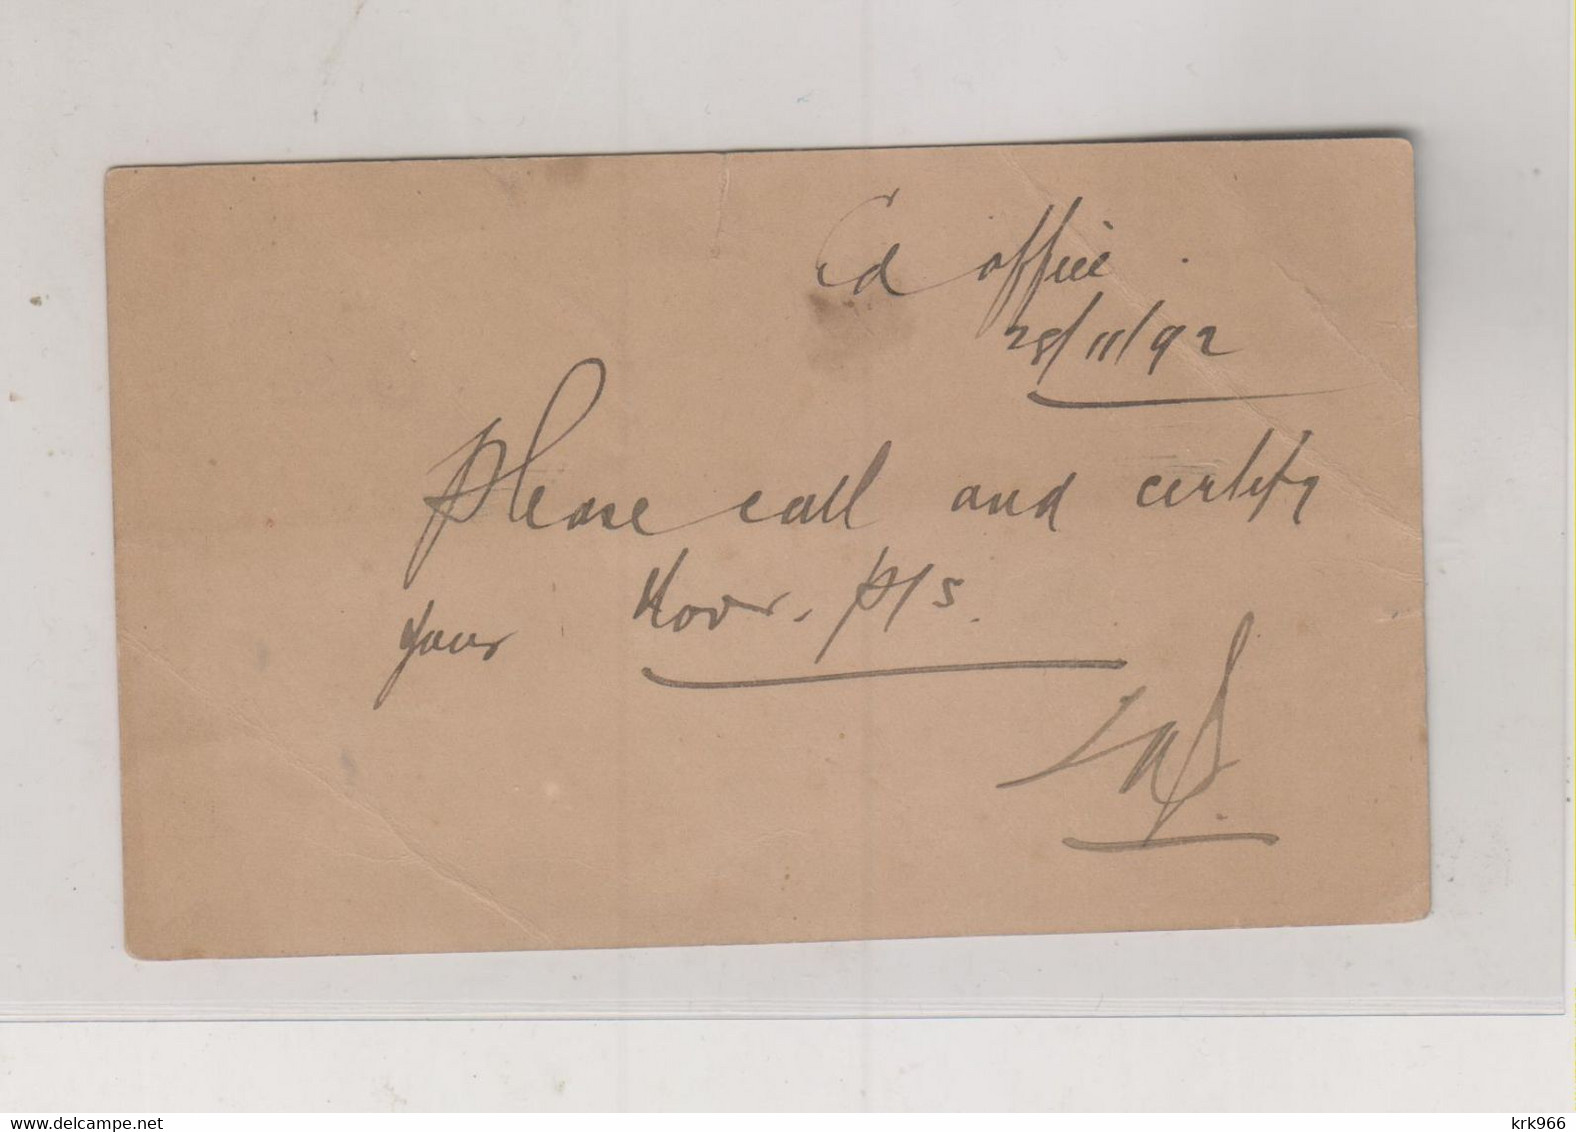 Ed office.
28/11/92
Please call and certify
your Novr. p/s.
krk966
www.delcampe.net